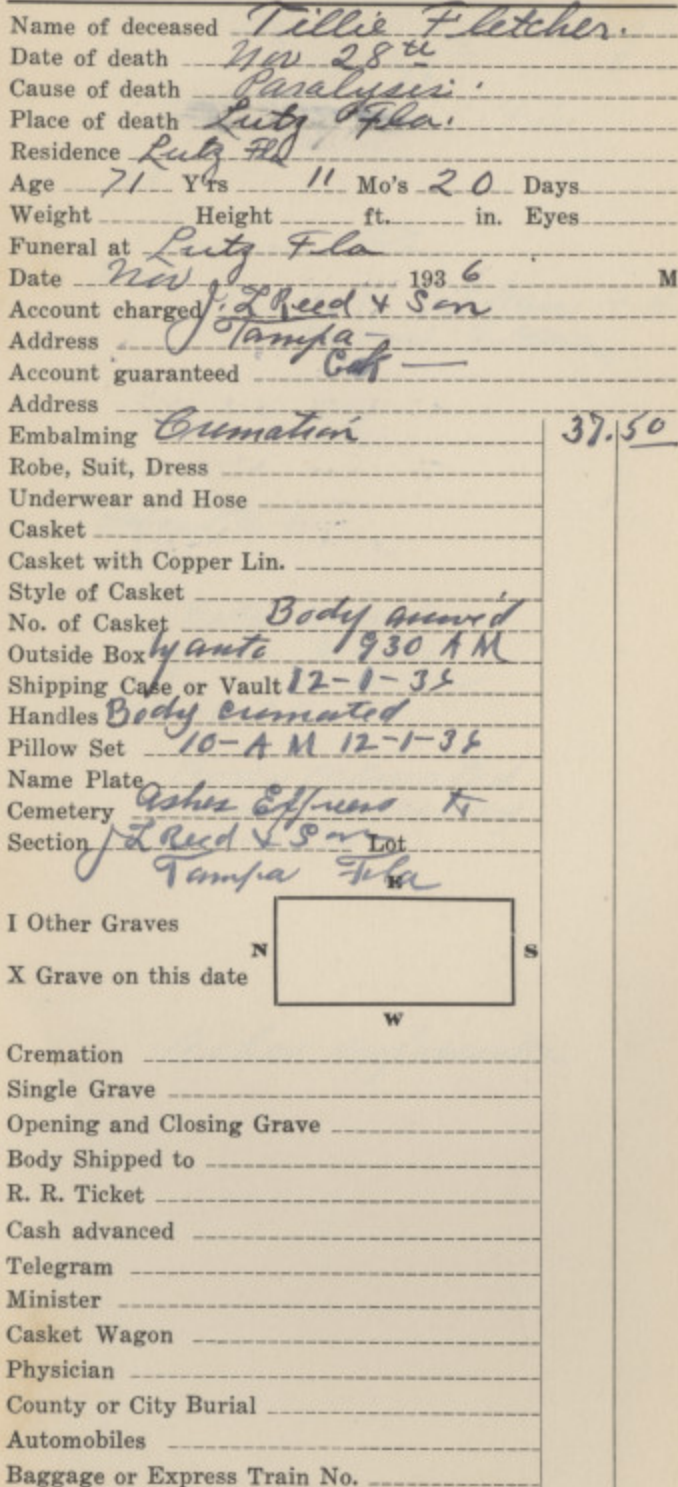 Name of deceased Tillie Fletcher.
Date of death Nov 28th
Cause of death Paralysis.
Place of death Lutz Fla.
Residence Lutz Fla
Age 71 Yrs 11 Mo's 20 Days
Weight Height ft. in. Eyes
Funeral at Lutz Fla
Date Nov 1936 M
Account charged J. L Reed & Son
Address Tampa
Account guaranteed
Address
Embalming Cremation 37.50
Robe, Suit, Dress
Underwear and Hose
Casket
Casket with Copper Lin.
Style of Casket
No. of Casket Body arrived
Outside Box by auto 930 A M
Shipping Case or Vault 12-1-36
Handles Body cremated
Pillow Set 10-A M 12-1-36
Name Plate
Cemetery Ashes Express to
Section J L Reed & Son Lot
Tampa Fla
E
I Other Graves
N S
X Grave on this date
W
Cremation
Single Grave
Opening and Closing Grave
Body Shipped to
R. R. Ticket
Cash advanced
Telegram
Minister
Casket Wagon
Physician
County or City Burial
Automobiles
Baggage or Express Train No.